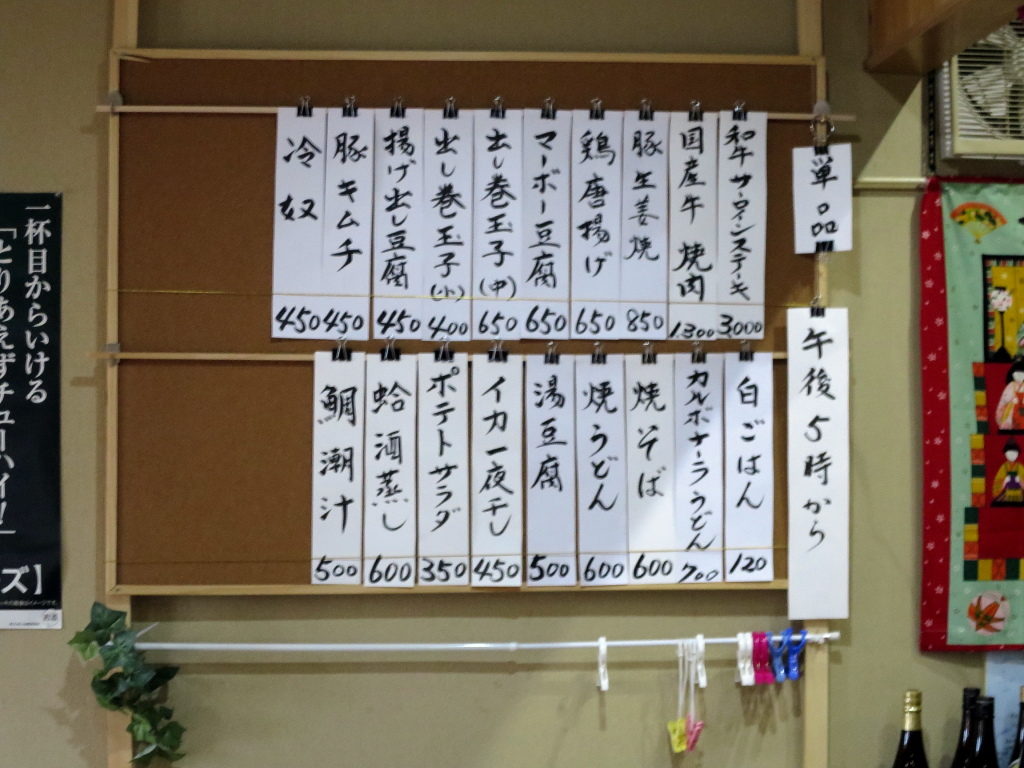 単品
午後5時から
和牛サーロインステーキ 3000
国産牛 焼肉 1300
豚生姜焼 850
鶏唐揚げ 650
マーボー豆腐 650
出し巻玉子(中) 650
出し巻玉子(小) 400
揚げ出し豆腐 450
豚キムチ 450
冷奴 450
白ごはん 120
カルボナーラうどん 700
焼そば 600
焼うどん 600
湯豆腐 500
イカ一夜干し 450
ポテトサラダ 350
蛤酒蒸し 600
鯛潮汁 500
一杯目からいける
「とりあえずチューハイ!」
ズ】